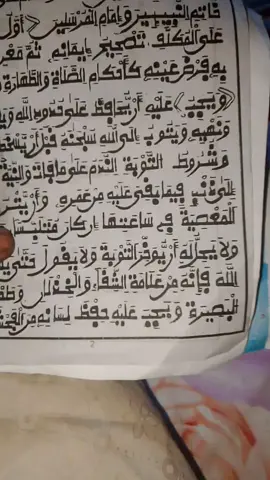 خَاتِمِ النَّبِيِّينَ وَإِمَامِ الْمُرْسَلِينَ ﴿أَوَّلُ
عَلَى الْمُكَلَّفِ تَصْحِيحُ إِيمَانِهِ ثُمَّ مَعْرِ
بِهِ فَرْضَ عَيْنِهِ كَأَحْكَامِ الصَّلَاةِ وَالطَّهَارَةِ
﴿وَيَجِبُ﴾ عَلَيْهِ أَنْ يُّحَافِظَ عَلَى حُدُودِ اللَّهِ وَيَ
وَنَهْيِهِ وَيَتُوبَ إِلَى اللَّهِ سُبْحَانَهُ قَبْلَ أَنْ يَّسْخَطَ
وَشُرُوطُ التَّوْبَةِ النَّدَمُ عَلَى مَا فَاتَ وَالنِّيَّةُ
إِلَى ذَنْبٍ فِيمَا بَقِيَ عَلَيْهِ مِنْ عُمُرِهِ وَأَنْ يَّتْرُ
الْمَعْصِيَةَ فِي سَاعَتِهَا إِنْ كَانَ مُتَلَبِّسًا
وَلَا يَحِلُّ لَهُ أَنْ يُّؤَخِّرَ التَّوْبَةَ وَلَا يَقُولَ حَتَّى يَهْ
اللَّهُ فَإِنَّهُ مِنْ عَلَامَةِ الشَّقَاءِ وَالْخِذْلَانِ وَطَمْ
الْبَصِيرَةِ وَيَجِبُ عَلَيْهِ حِفْظُ لِسَانِهِ مِنَ الْفَحْشَ